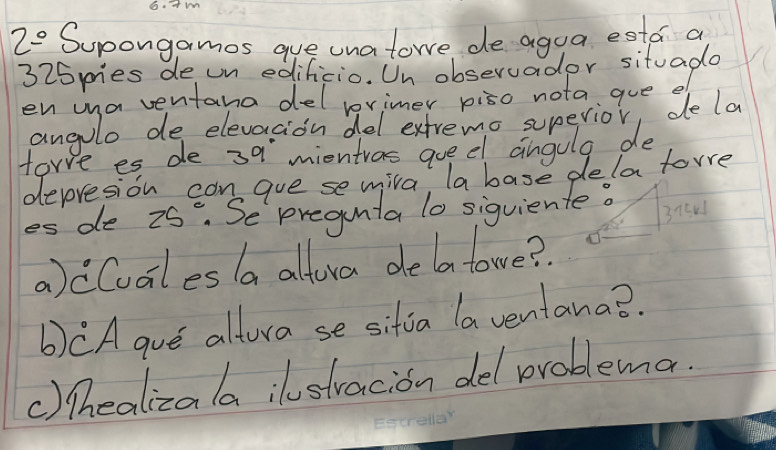 6.7m
2º Supongamos que una torre de agua está a
325 pies de un edificio. Un observador situado
en una ventana del primer piso nota que el
angulo de elevación del extremo superior, de la
torre es de 39° mientras que el ángulo de
depresión con que se mira, la base de la torre
es de 25°. Se pregunta lo siguiente:
a) ¿Cuál es la altura de la torre?.
b) ¿A qué altura se sitúa la ventana?.
c) Realiza la ilustración del problema.
Estrella